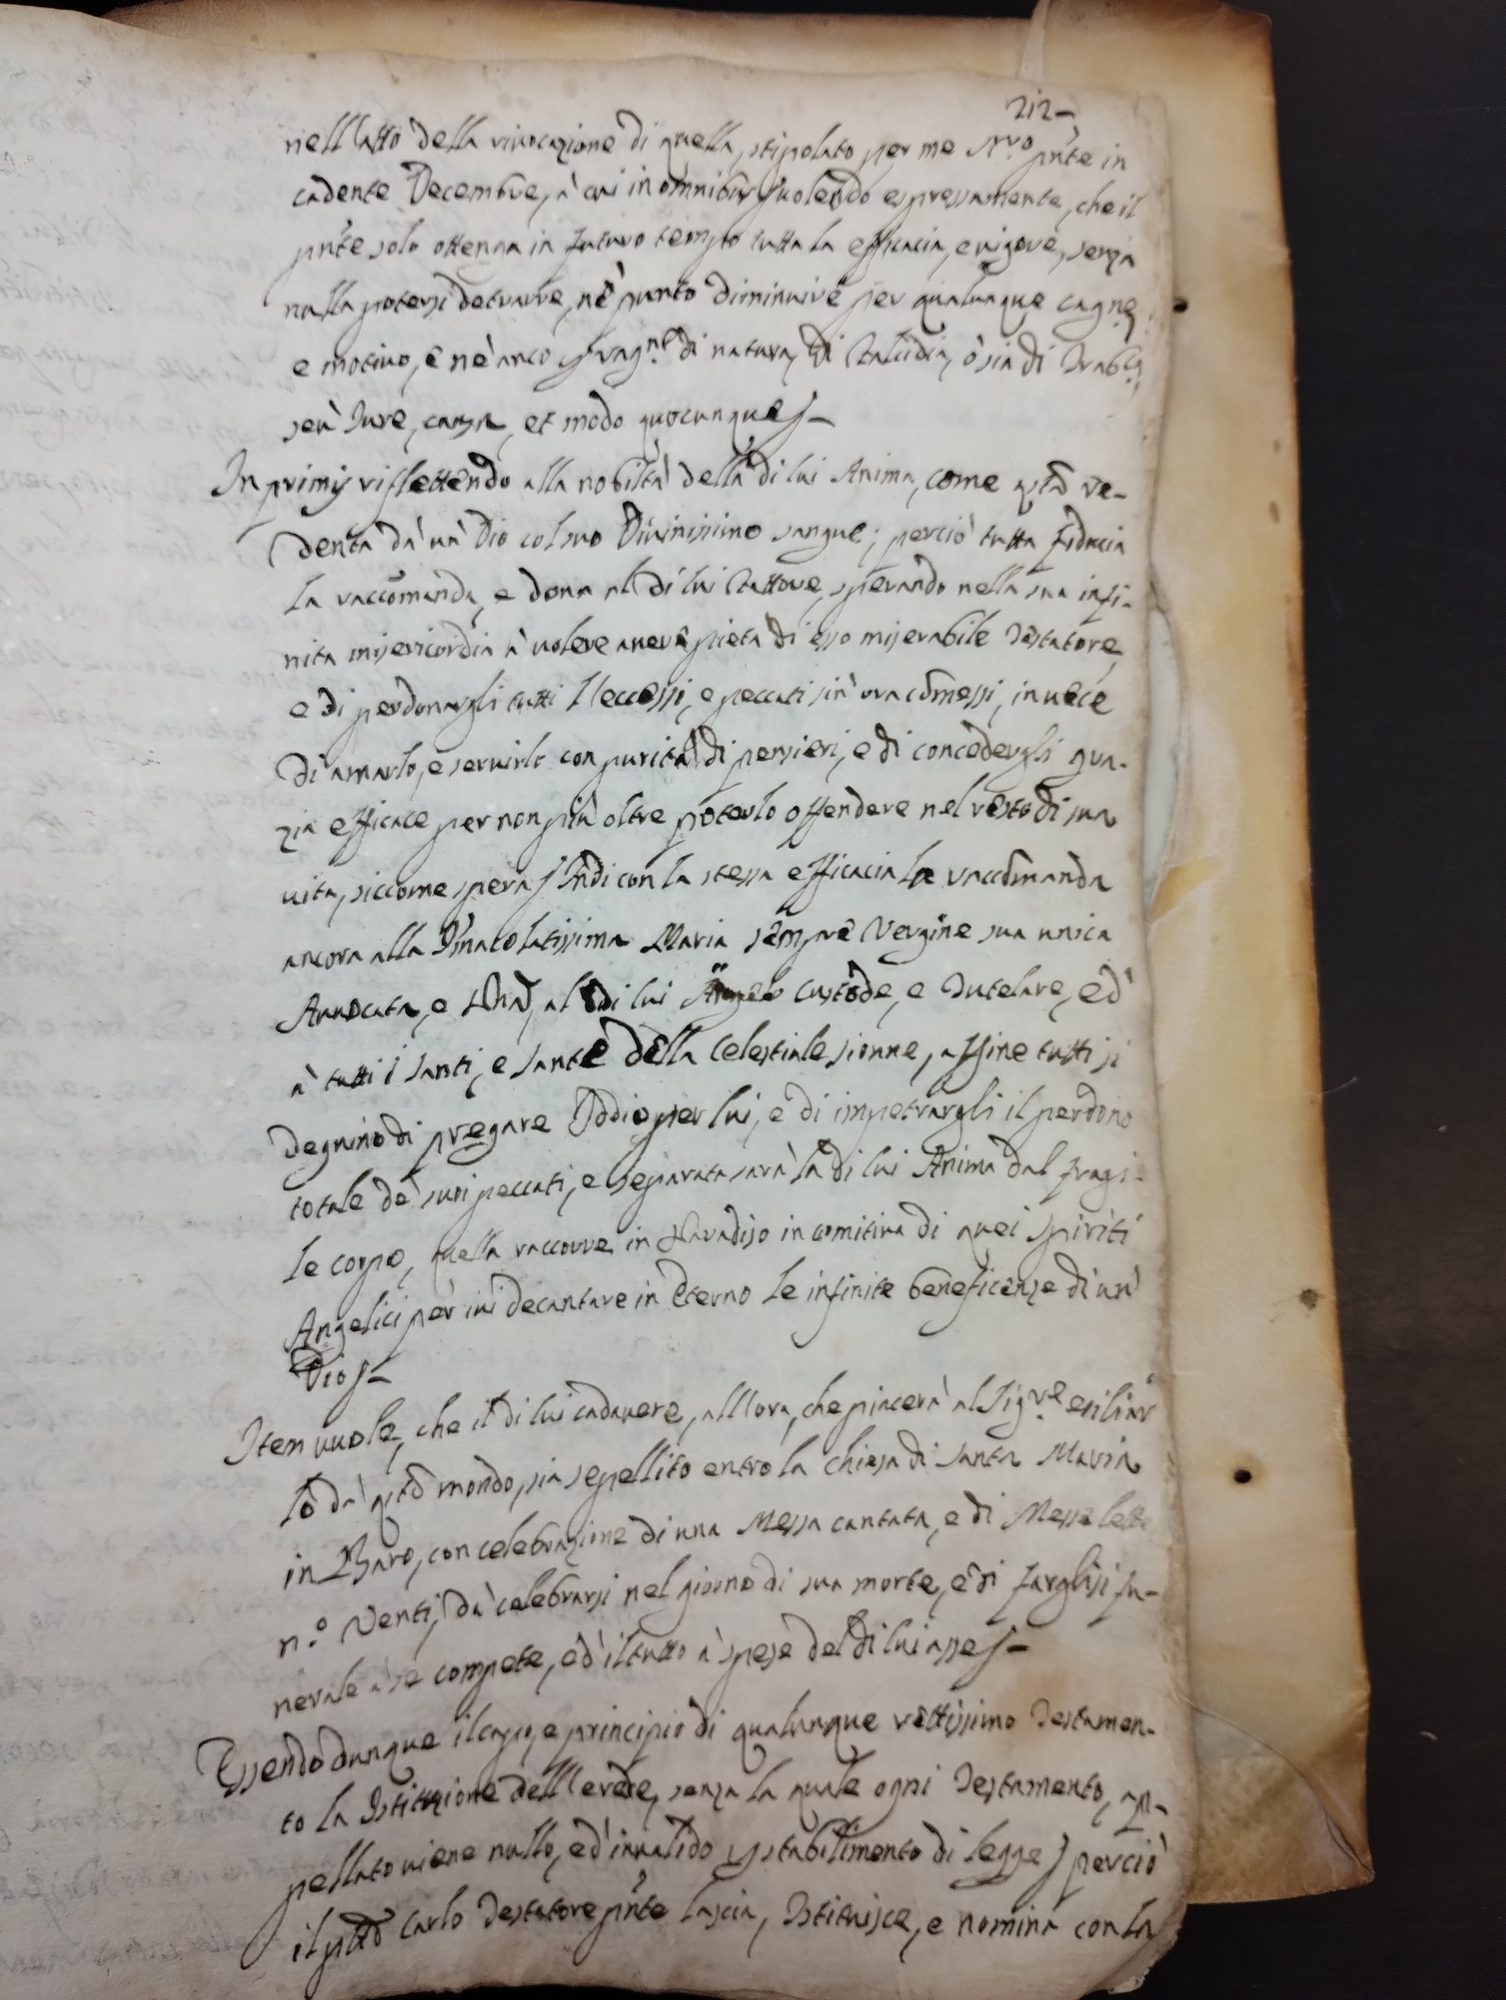 212
nell'atto della rivocazione di quella, stipolato per me Nro pnte in
cadente Decembre, à cui in omnibus; volendo espressamente, che il
pnte solo ottenna in futuro tempo tutta la efficacia, e vigore, senza
nulla potersi detrarre, nè punto diminuire per qualunque cagne,
e motivo, e nè anco p ragne di natura, di Falcidia, ò sia di Trablca,
seù Jure, causa, et modo quocunque
In primis riflettendo alla nobiltà della di lui Anima, come qtà re-
denta dà un Dio col suo Divinissimo sangue; perciò tutta fiducia
la raccomanda, e dona al di lui Fattore, sperando nella sua infi-
nita misericordia à volere avere pietà di esso miserabile Testatore,
e di perdonargli tutti l'eccessi, e peccati sin' ora comessi, in vece
di amarlo, e servirlo con purità di pensieri, e di concedergli gra-
zia efficace per non più oltre poterlo offendere nel resto di sua
vita, siccome spera; Indi con la stessa efficacia la raccomanda
ancora alla Immacolatissima Maria sempre Vergine sua unica
Avvocata, e al di lui Angelo Custode, e Tutelare, ed
à tutti i santi, e sante della Celestiale sionne, affine tutti si
degnino di pregare Iddio per lui, e di impetrargli il perdono
totale de' suoi peccati, e separata sarà la di lui Anima dal fragi-
le corpo, quella raccorre in Paradiso in comitiva di quei spiriti
Angelici per ivi decantare in eterno le infinite beneficenze di un'
Dio
Item vuole, che il di lui cadavere, all'ora, che piacerà al Sigre esiliar
lo dà qto mondo, sia sepellito entro la chiesa di santa Maria
in Baro, con celebrazione di una Messa cantata, e di Messe lette
n.o Venti, dà celebrarsi nel giorno di sua morte, e di farglisi fu-
nerale à se compete, ed' il tutto à spese del di lui asse
Essendo dunque il capo, e principio di qualunque rettissimo Testamen-
to la Istituzione dell'erede, senza la quale ogni Testamento, ap-
pellato viene nullo, ed' invalido p stabilimento di legge; perciò
il pto Carlo Testatore pnte lascia, Istituisce, e nomina con la